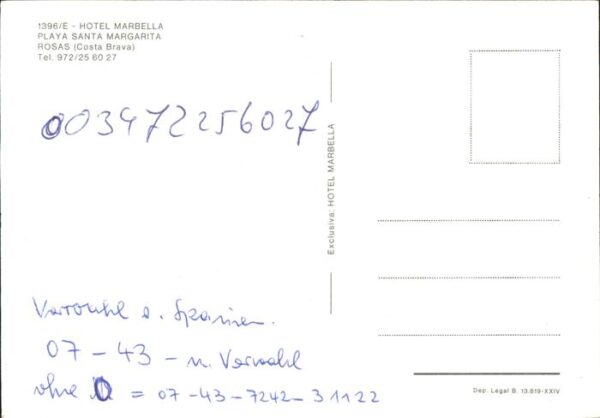 1396/E - HOTEL MARBELLA
PLAYA SANTA MARGARITA
ROSAS (Costa Brava)
Tel. 972/25 60 27
003472256027
Exclusiva: HOTEL MARBELLA
Vorwahl a. Spanien.
07 - 43 - n. Vorwahl
ohne 0 = 07-43-7242-31122
Dep. Legal B. 13.819-XXIV